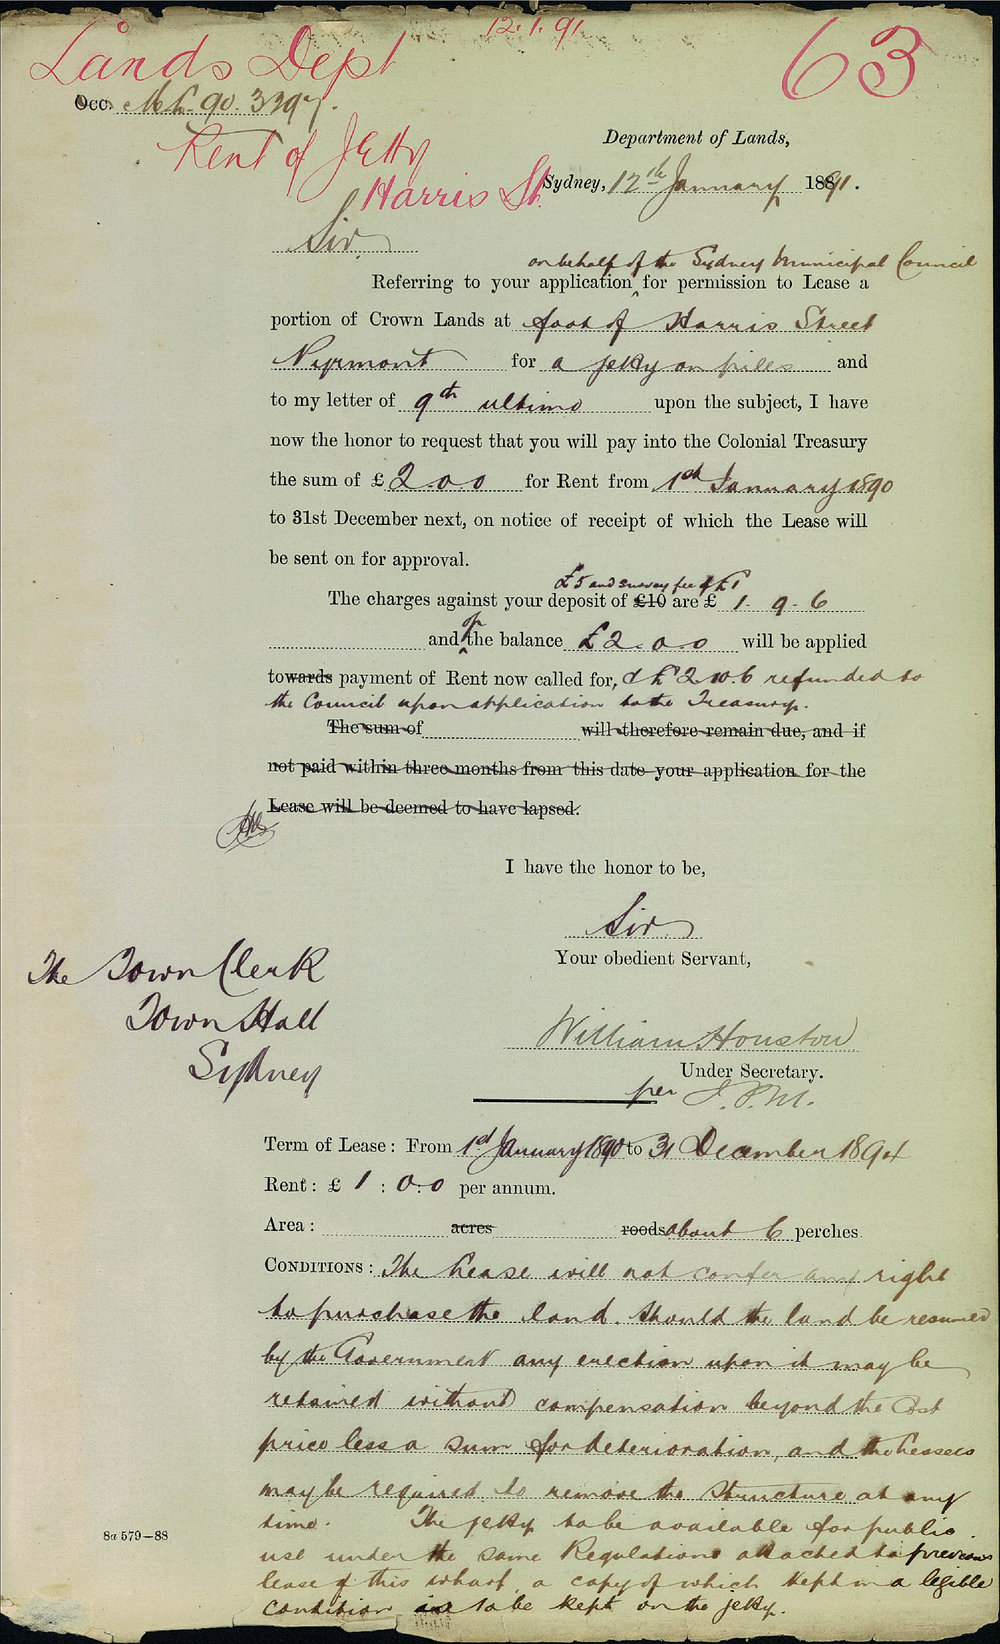 12.1.91
63
Lands Dept
Occ. Ms. 90. 3397.
Rent of Jetty
Harris St.
Department of Lands,
Sydney, 12th January 1891.
Sir,
on behalf of the Sydney Municipal Council
Referring to your application ‸ for permission to Lease a
portion of Crown Lands at foot of Harris Street
Pyrmont for a jetty on piles and
to my letter of 9th ultimo upon the subject, I have
now the honor to request that you will pay into the Colonial Treasury
the sum of £ 2. 0. 0 for Rent from 1st January 1890
to 31st December next, on notice of receipt of which the Lease will
be sent on for approval.
£5 and survey fee of £1
The charges against your deposit of £10 are £ 1. 9. 6
and of the balance £2. 0. 0 will be applied
towards payment of Rent now called for, & £2.10.6 refunded to
the Council upon application to the Treasury.
The sum of will therefore remain due, and if
not paid within three months from this date your application for the
Lease will be deemed to have lapsed.
I have the honor to be,
Sir,
Your obedient Servant,
The Town Clerk
Town Hall
Sydney
William Houston
Under Secretary.
per J.P.M.
Term of Lease: From 1st January 1890 to 31 December 1894
Rent: £ 1 : 0 : 0 per annum.
Area: acres roods about 6 perches
CONDITIONS: The Lease will not confer any right
to purchase the land. Should the land be resumed
by the Government any erection upon it may be
retained without compensation beyond the Cost
price less a sum for deterioration, and the Lessees
may be required to remove the structure at any
time. The jetty to be available for public
use under the same Regulations attached to previous
lease of this wharf, a copy of which kept in a legible
condition to be kept on the jetty.
8a 579—88